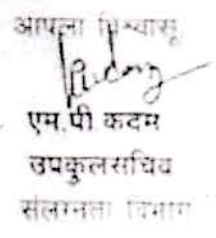 आपला विश्वासू
एम.पी.कदम
उपकुलसचिव
संलग्नता विभाग